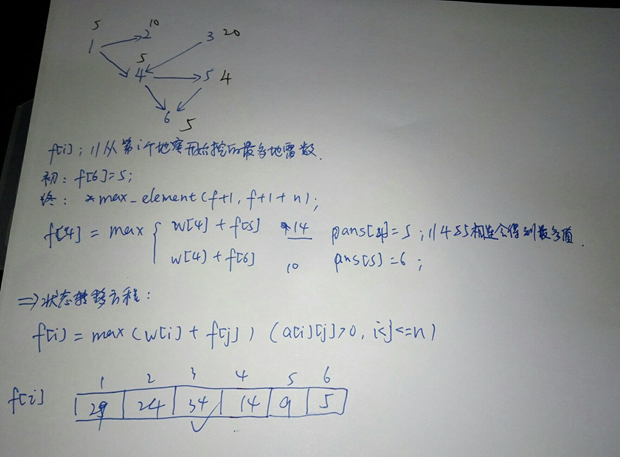 5 10
1 2 3 20
5
4 5 4
6 5
f[i]; //从第i个地窖开始挖的最多地雷数.
初: f[6]=5;
终: *max_element(f+1, f+1+n);
f[4] = max { w[4] + f[5] 14 pans[4]=5; //4与5相连会得到最多值.
w[4] + f[6] 10 pans[5]=6;
=>状态转移方程:
f[i] = max(w[i] + f[j]) (a[i][j]>0, i<j<=n)
1 2 3 4 5 6
f[i] 29 24 34 14 9 5